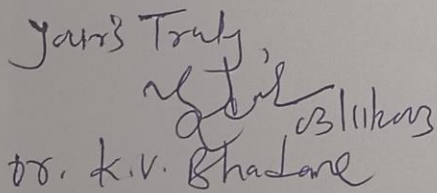 Your's Truly,
03/11/2023
Dr. K.V. Bhadane